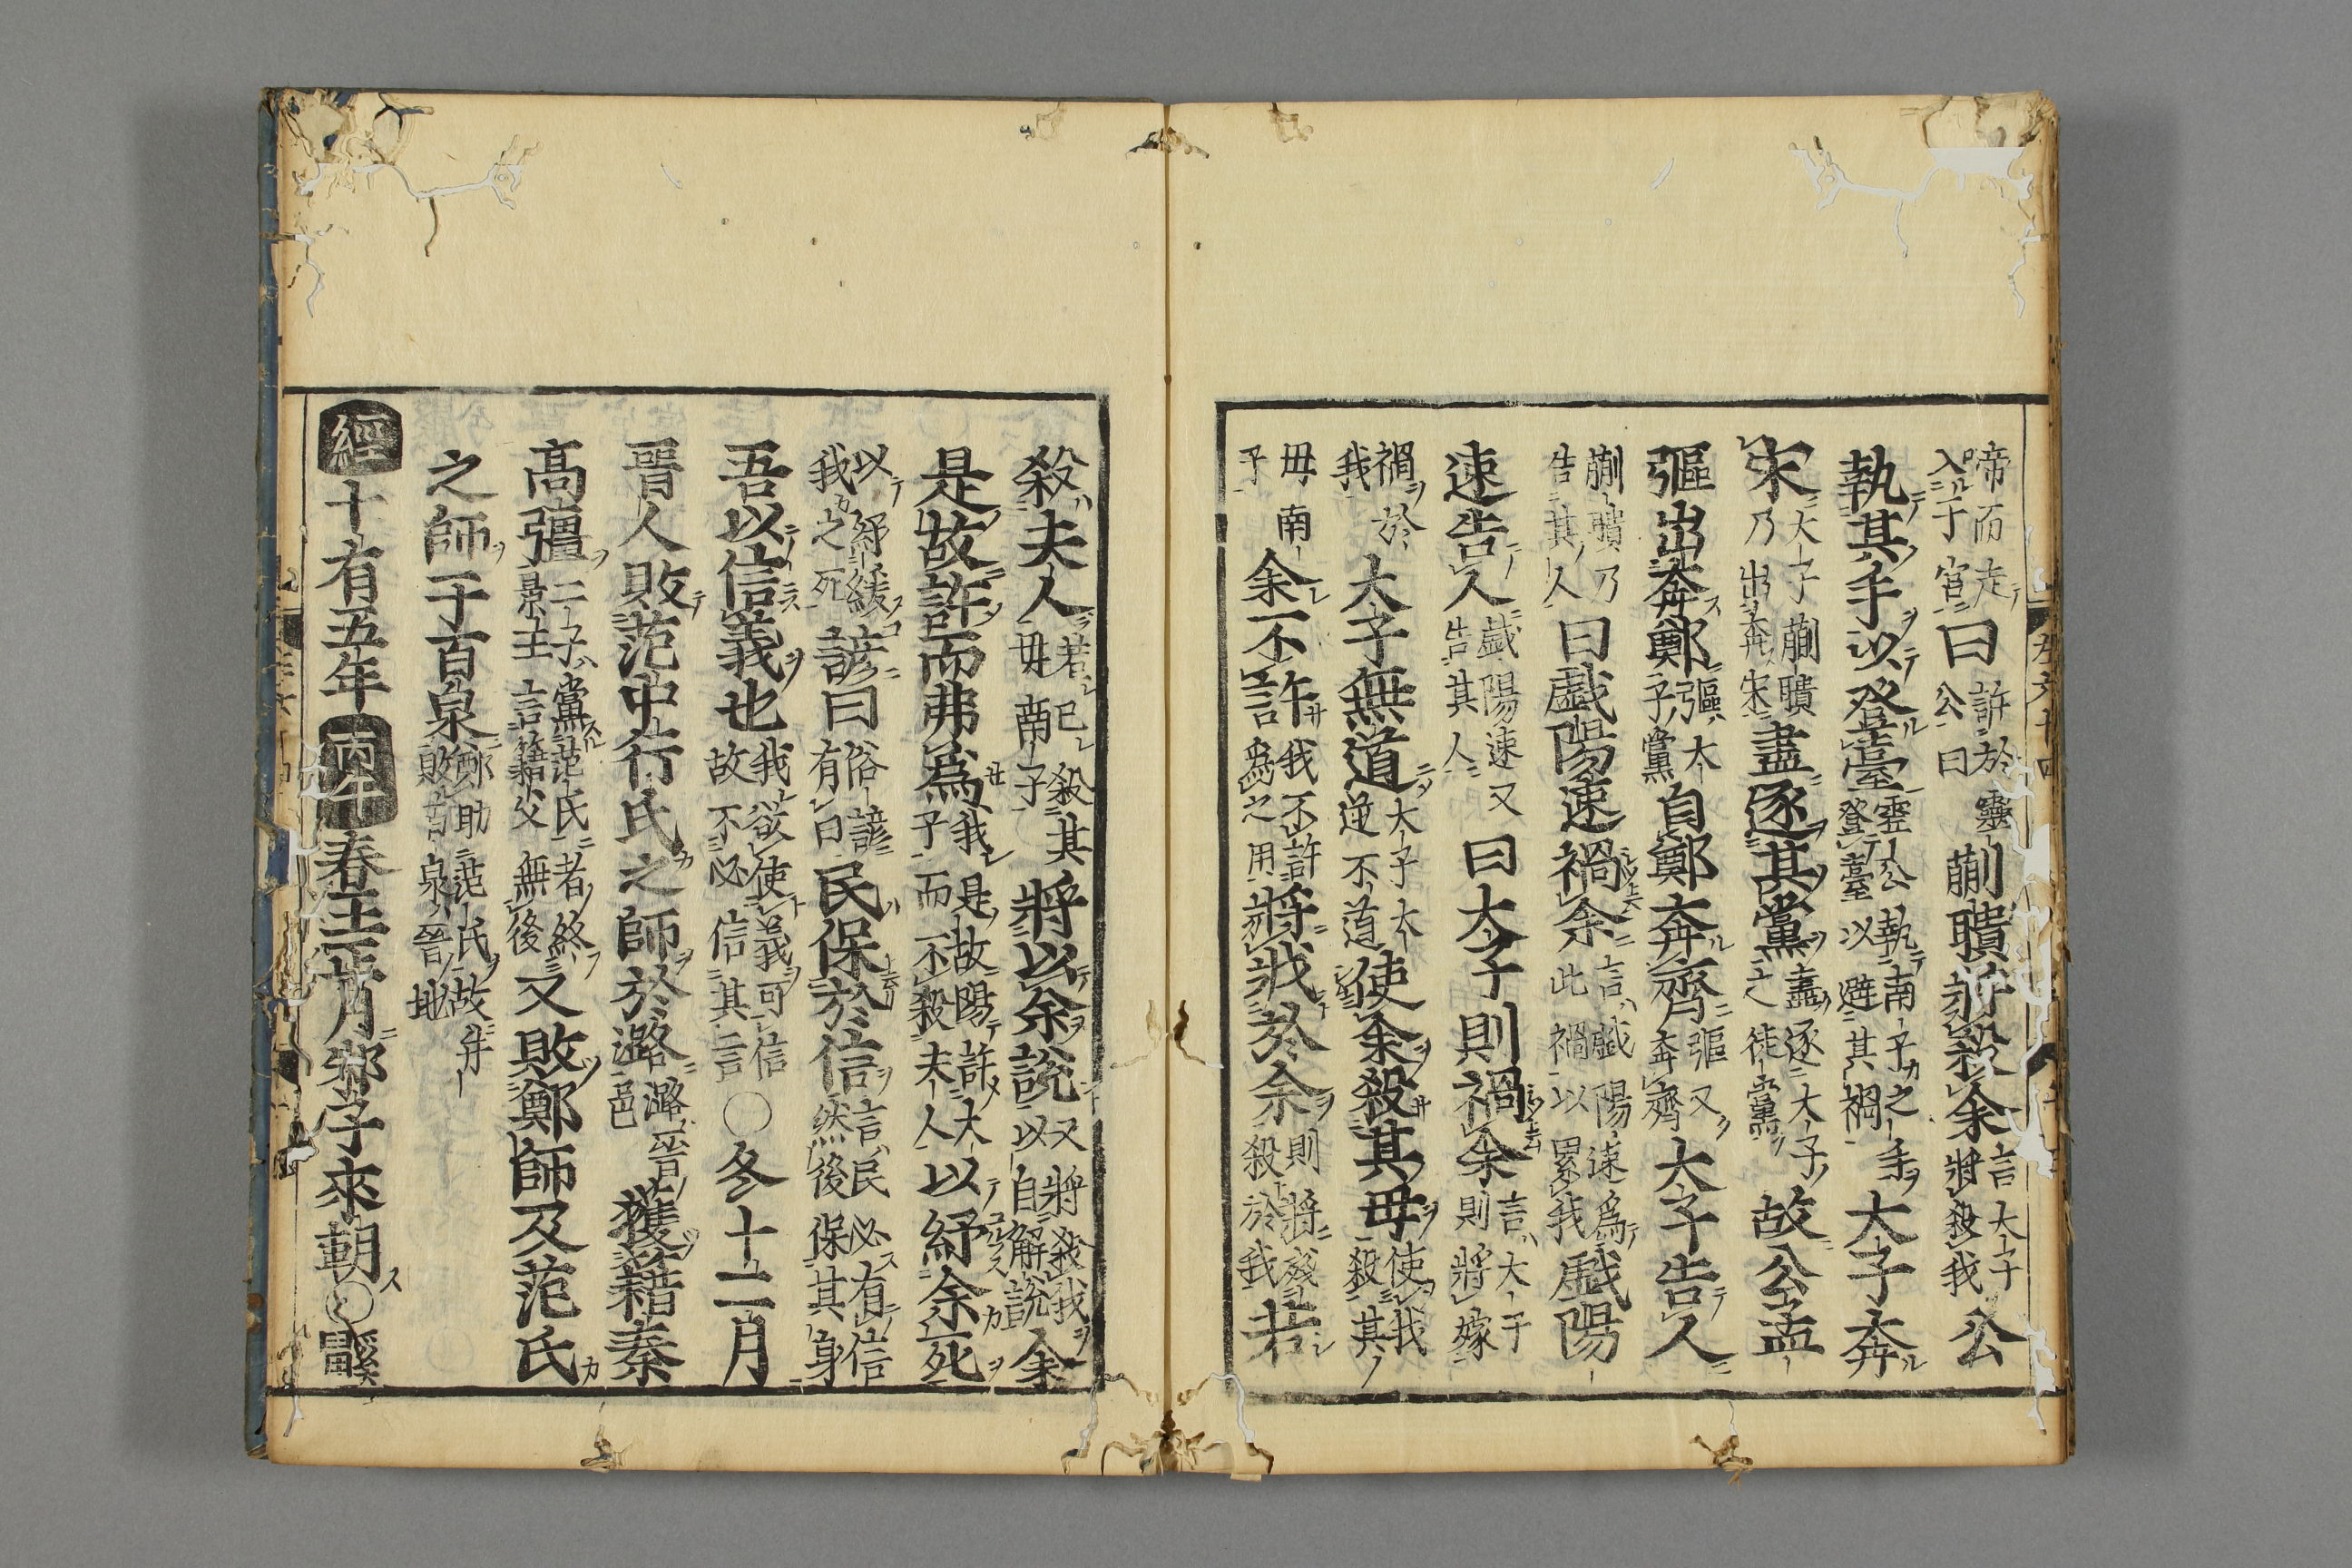 啼而走入于宮曰許於靈公曰蒯聵將殺余言大子將殺我公
執其手以登臺靈公執南子之手登臺以避其禍大子奔
宋大子蒯聵乃出奔宋盡逐其黨盡逐大子之徒黨故公孟
彄出奔鄭彄大子黨自鄭奔齊彄又奔齊大子告人
蒯聵乃告其人曰戲陽速禍余言戲陽速爲此禍以累我戲陽
速告人戲陽速又告其人曰大子則禍余言大子則將嫁
禍於我大子無道大子大逆不道使余殺其母使我殺其
母南子余不許我不許爲之用將戕於余則將殘殺於我若
殺夫人若已殺其母南子將以余說又將殺我以自解說余
是故許而弗爲我是故陽許大子而不殺夫人以紓余死
以紓緩我之死諺曰俗諺有曰民保於信言民必有信然後保其身
吾以信義也我欲使義可信故不必信其言〇冬十二月
晉人敗范中行氏之師於潞潞晉邑獲藉秦
高彊二子黨范氏者終景王言籍父無後又敗鄭師及范氏
之師于百泉鄭助范氏故并敗百泉晉地
經十有五年丙午春王正月邾子來朝〇鼷